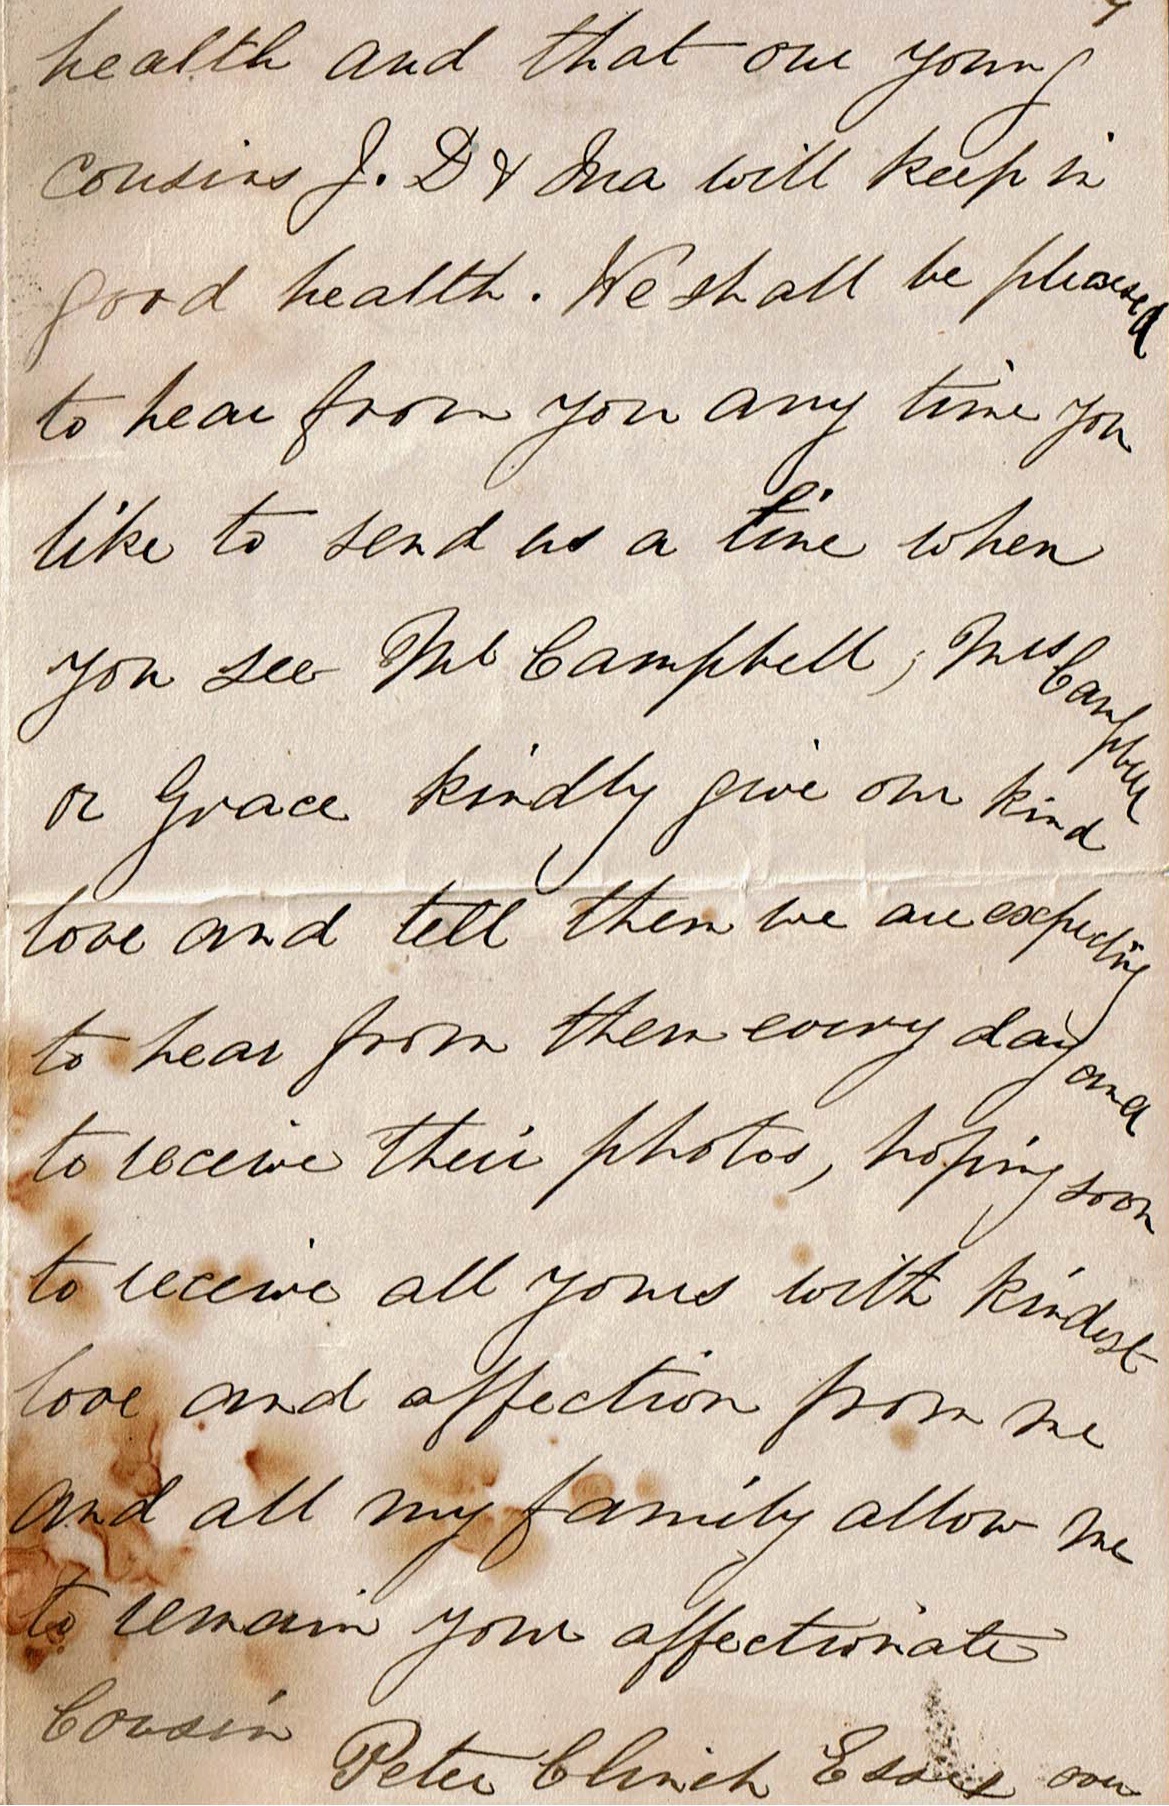 health and that our young
cousins J. D & Ina will keep in
good health. We shall be pleased
to hear from you any time you
like to send us a line when
you see Mr Campbell, Mrs Campbell
or Grace kindly give our kind
love and tell them we are expecting
to hear from them every day and
to receive their photos, hoping soon
to receive all yours with kindest
love and affection from me
and all my family allow me
to remain your affectionate
Cousin
Peter Clinch Essex over